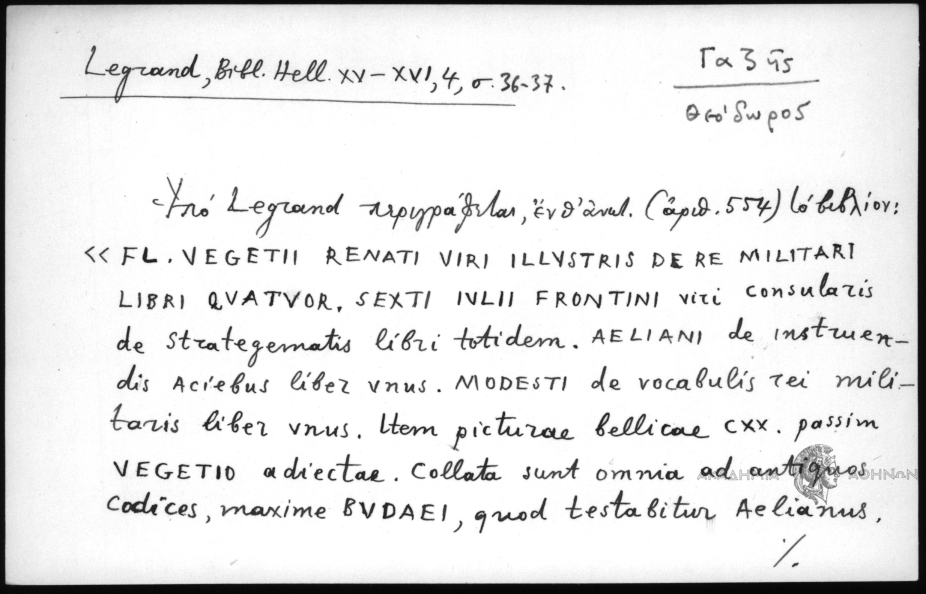 Legrand, Bibl. Hell. XV-XVI, 4, σ. 36-37.
Γαζῆς
Θεόδωρος
Ὑπό Legrand περιγράφεται, ἐνθ' ἀνωτ. (ἀριθ. 554) τό βιβλίον:
<< FL. VEGETII RENATI VIRI ILLVSTRIS DE RE MILITARI
LIBRI QVATVOR. SEXTI IVLII FRONTINI viri consularis
de Strategematis libri totidem. AELIANI de instruen-
dis Aciebus liber vnus. MODESTI de vocabulis rei mili-
taris liber vnus. Item picturae bellicae CXX. passim
VEGETIO adiectae. Collata sunt omnia ad antiquos
Codices, maxime BVDAEI, quod testabitur Aelianus.
./.
ΑΚΑΔΗΜΙΑ ΑΘΗΝΩΝ